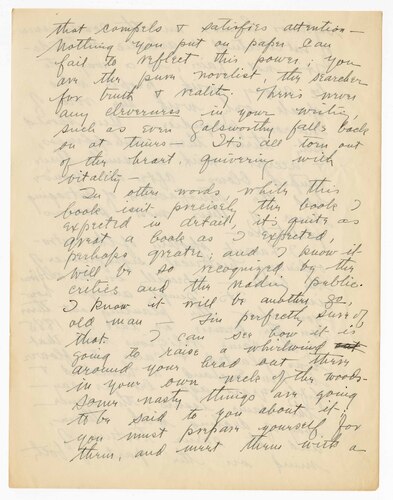 that compels & satisfies attention—
Nothing you put on paper can
fail to reflect this power; you
are the pure novelist, the searcher
for truth & reality. There's never
any cleverness in your writing,
such as even Galsworthy falls back
on at times — It's all torn out
of the heart, quivering with
vitality—
In other words, while this
book isn't precisely the book I
expected in detail, it's quite as
great a book as I expected,
perhaps greater; and I know it
will be so recognized by the
critics and the reading public.
I know it will be another go,
old man — I'm perfectly sure of
that. I can see how it is
going to raise a whirlwind
around your head out there
in your own neck of the woods—
Some nasty things are going
to be said to you about it;
you must prepare yourself for
them, and meet them with a